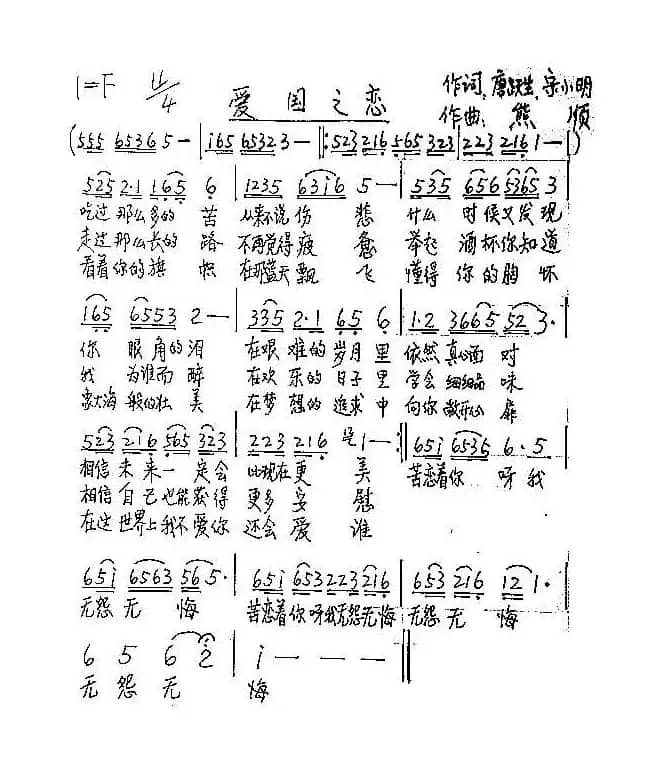 1=F 4/4
爱国之恋
作词：唐跃生、宋小明
作曲：熊 顺
(555 6536 5 — | i65 65323 — ‖: 523 216 565 323 | 223 216 1 — |)
525 2·1 165 6 | 1235 63i6 5 — | 535 656 5365 3
吃过那么多的 苦 从来不说伤 悲 什么 时候又发现
走过那么长的 路 不再觉得疲 惫 举起 酒杯你知道
看着你的旗 帜 在那蓝天飘 飞 懂得 你的胸 怀
165 6553 2 — | 335 2·1 65 6 | 1·2 3665 52 3·
你 眼角的泪 在艰难的岁月里 依然真心面 对
我 为谁而 醉 在欢乐的日子里 学会细细品 味
象大海般的壮 美 在梦想的追求中 向你敞开心扉
523 216 565 323 | 223 216 1 — :‖ 65i 6535 6·5
相信 未来一 定会 比现在更 美 苦恋着你 呀我
相信 自己也能获得 更多 安 慰
在这 世界上我不爱你 还会 爱 谁
65i 6563 56 5· | 65i 653 223 216 | 653 216 12 1·
无怨 无 悔 苦恋着你呀我无怨无悔 无怨 无 悔
6 5 6 2 | i — — — ‖
无 怨 无 悔